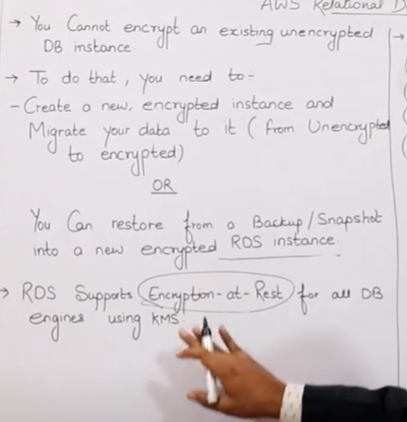 AWS Relational D
→ You Cannot encrypt an existing unencrypted
DB instance.
→ To do that, you need to:-
- Create a new, encrypted instance and
Migrate your data to it (from Unencrypted
to encrypted)
OR
You Can restore from a Backup/Snapshot
into a new encrypted RDS instance.
→ RDS Supports Encryption-at-Rest for all DB
engines using KMS.
→